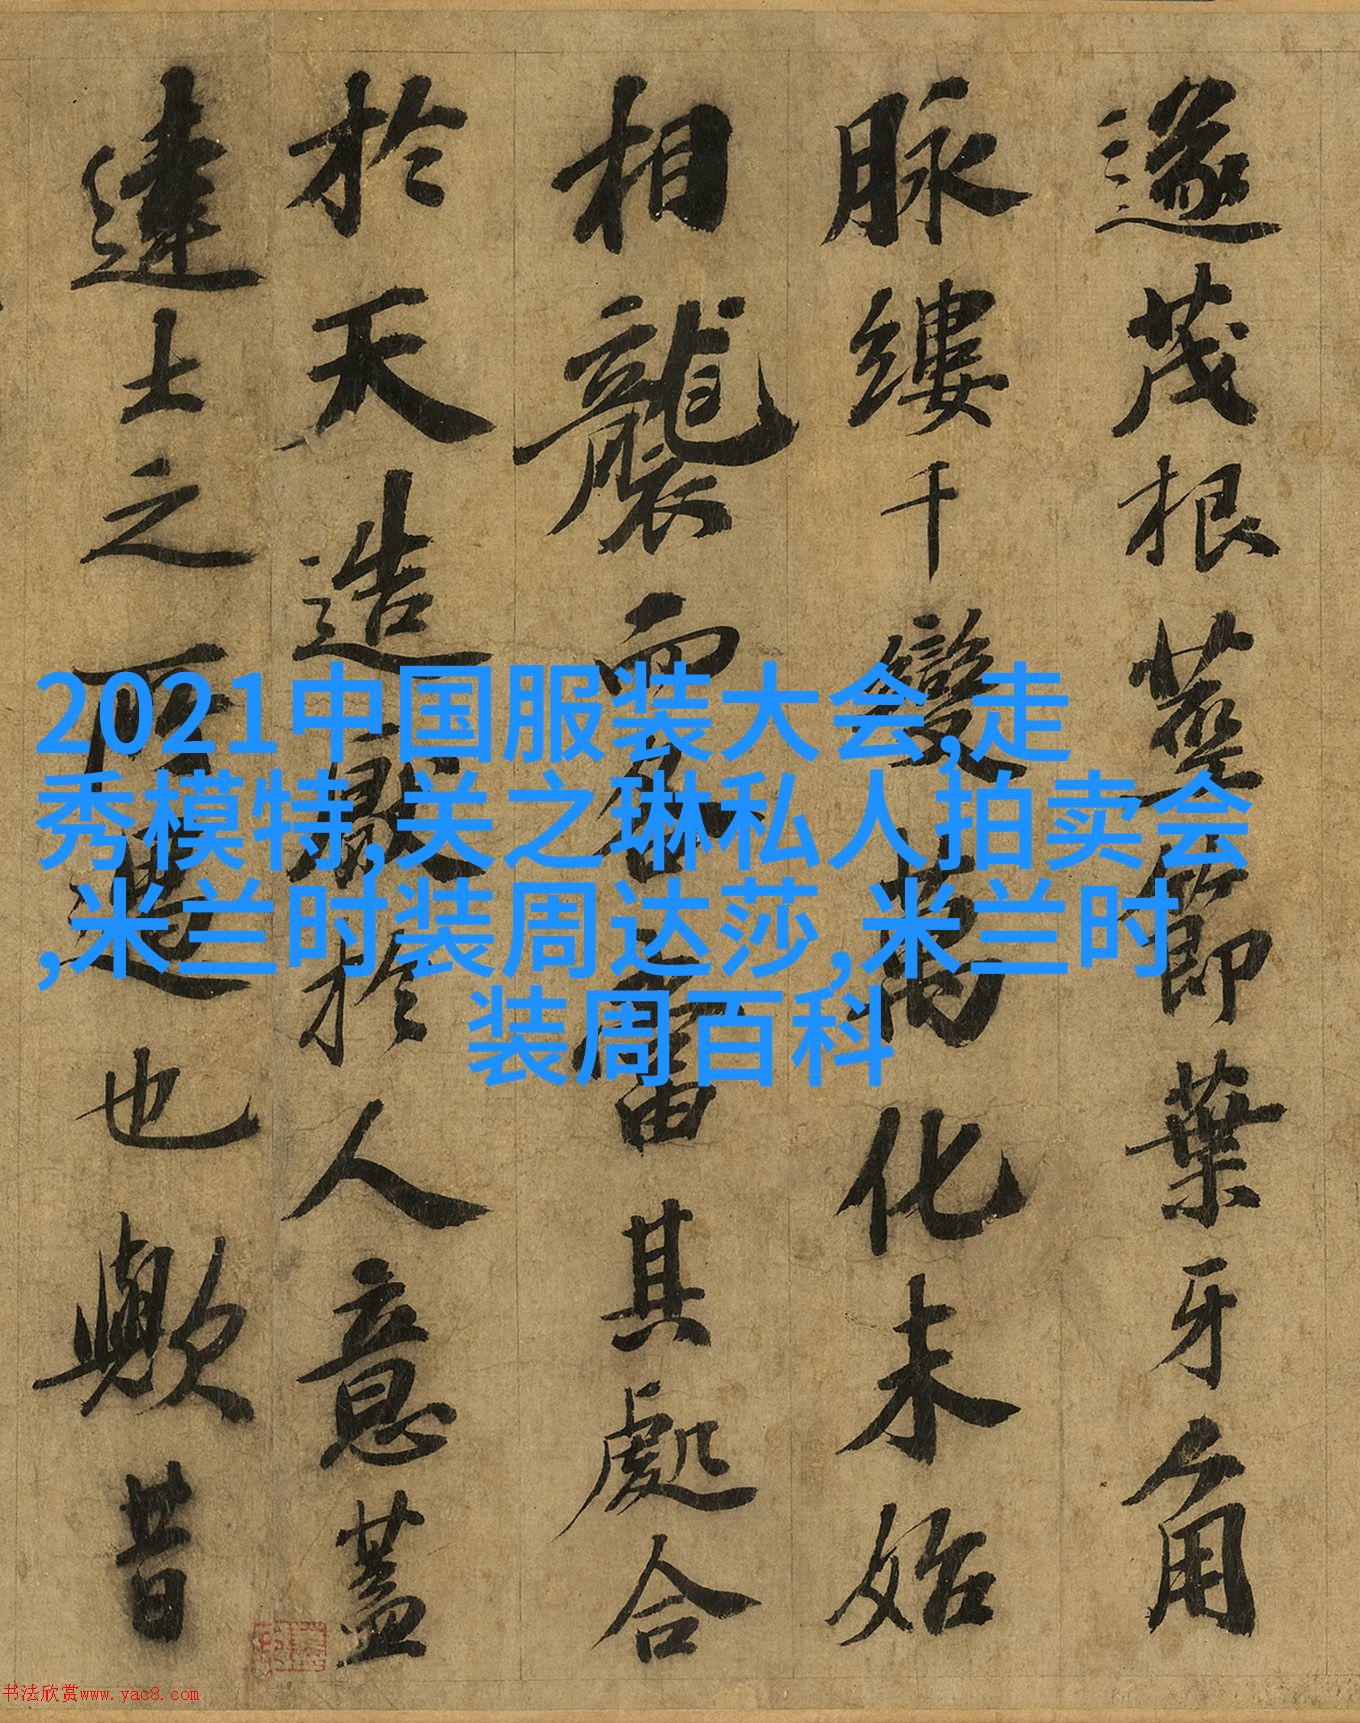 遂茂根莖節葉牙角
脉縷千變萬化未始
相襲而各當其處合
於天造厭於人意蓋
達士之所遇也歟昔
2021中国服装大会,走
秀模特,关之琳私人拍卖会
,米兰时装周达莎,米兰时
装周百科
书法欣赏www.yac8.com